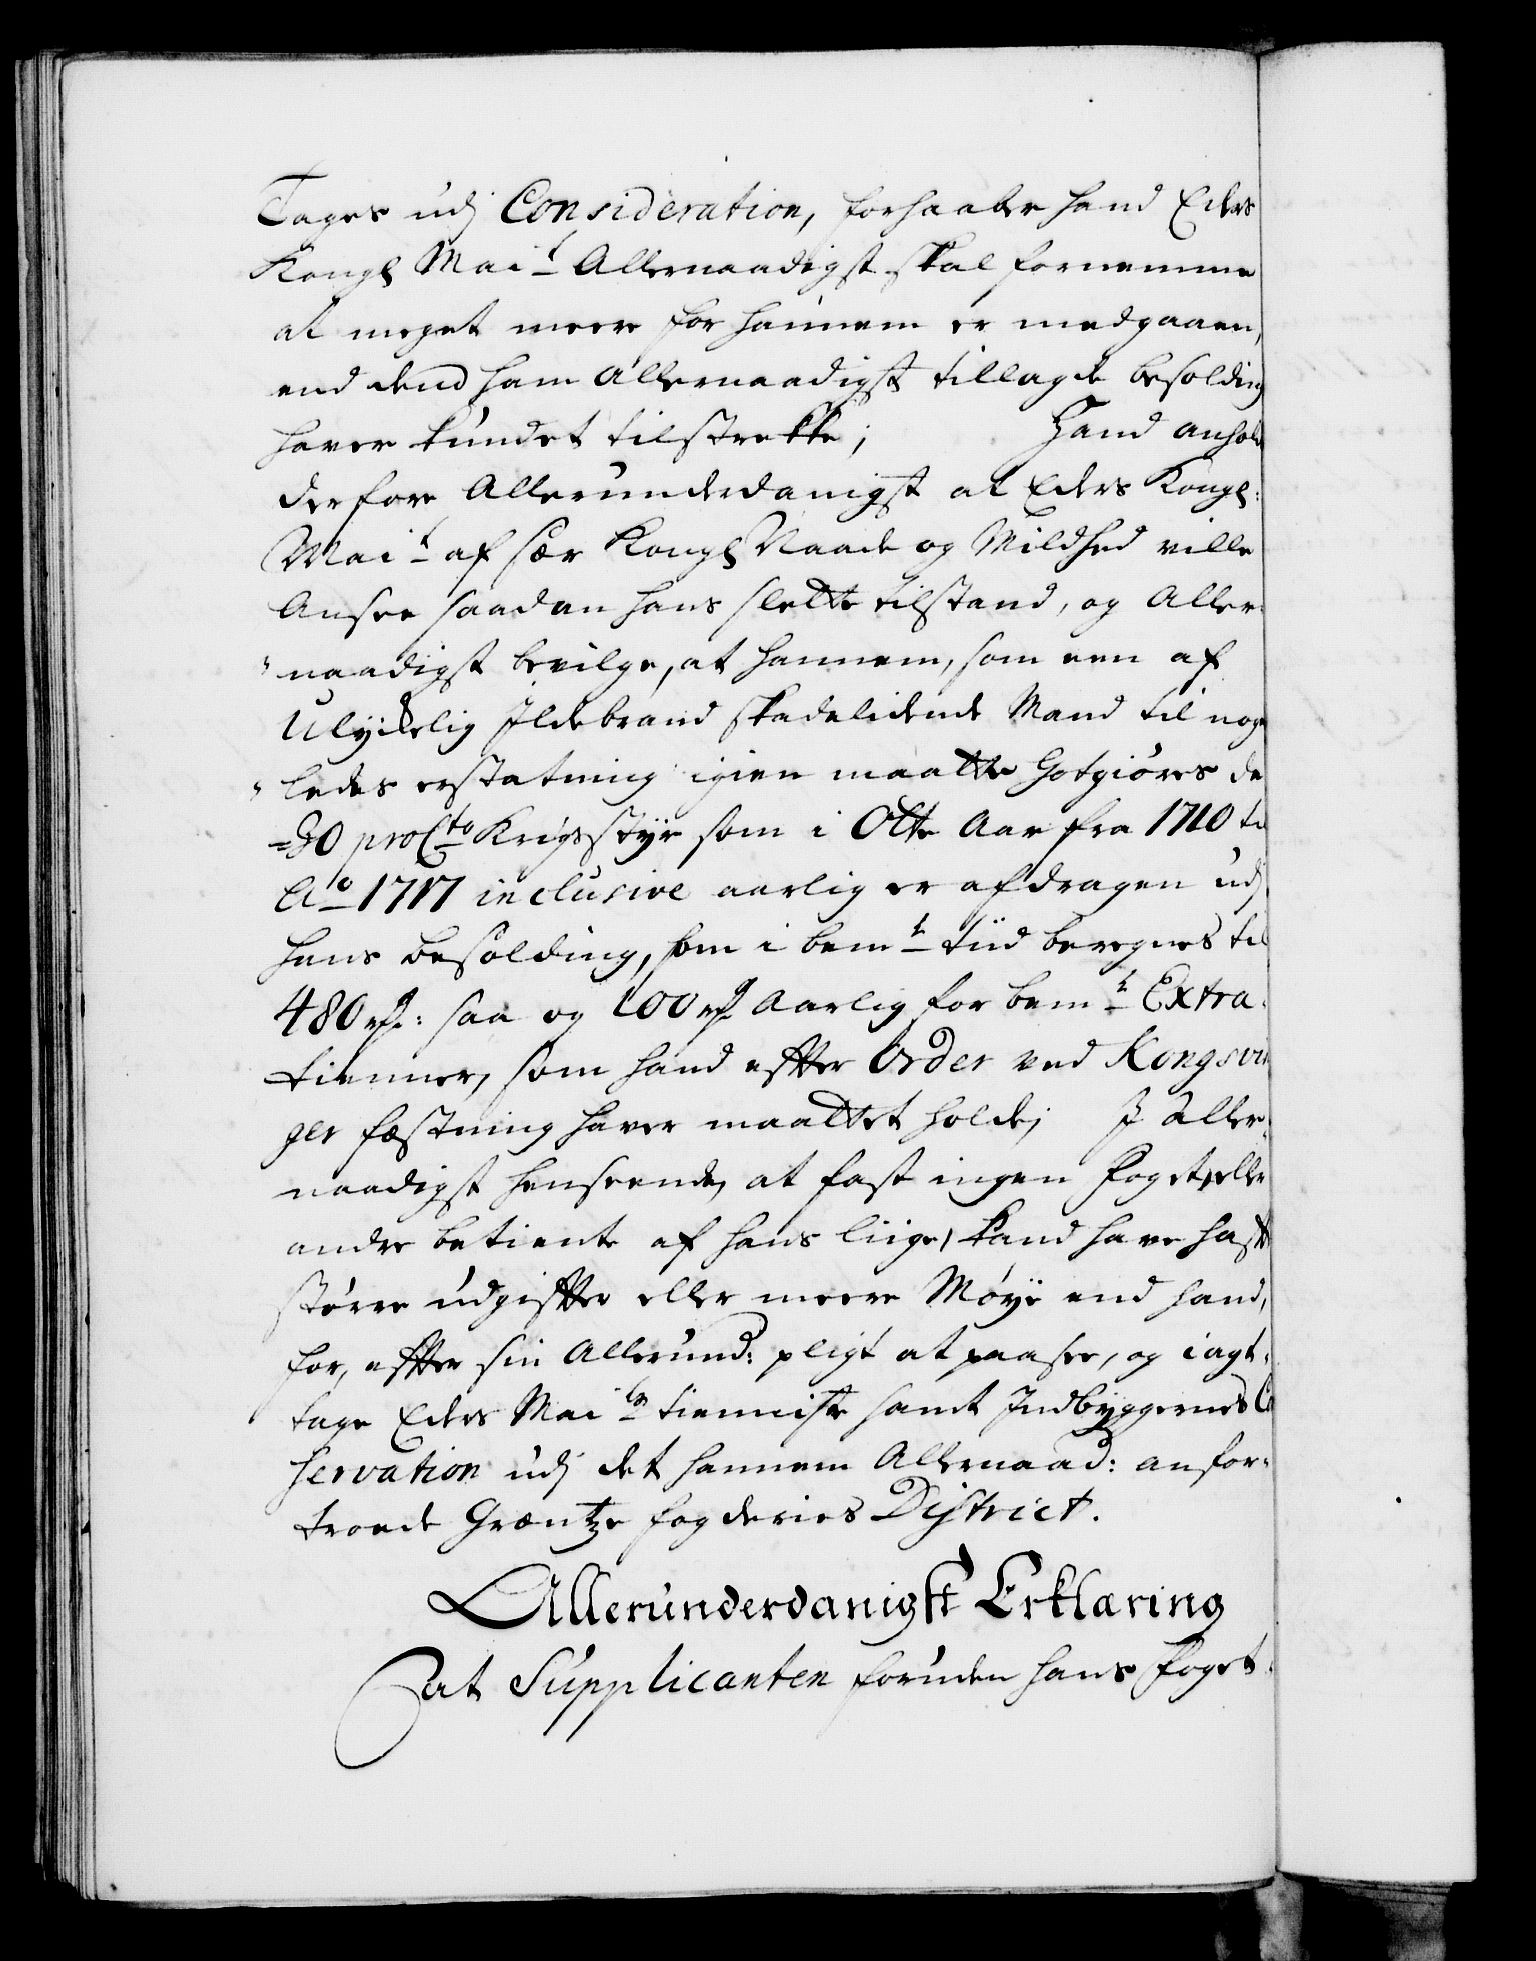 Tages udj Consideration, forhaaber hand Eders
Kongl Mai.t Allernaadigst skal fornemme
at meget meere for hannem er medgaaen,
end dend ham Allernaadigst tillagde besolding
haver kundet tilstrekke; Hand anhold
derfore Allerunderdanigst at Eders Kongl:
Mai.t af sær Kongl Naade og Mildhed ville
Ansee saadan hans slette tilstand, og Aller-
naadigst bevilge, at hannem, som een af
Ulyckelig Ildebrand skadelidende Mand til noge
ledes erstatning igien maatte Gotgiöres de
30 proC.to Krigsstyr som i Otte Aar fra 1710 til
A.o 1717 inclusive aarlig er afdragen udj
hans besolding, som i bem.t tiid beregnes til
480 rd.: saa og 100 rd. Aarlig for bem.t Extra-
tienner, som hand effter Order ved Kongsvin
ger fæstning haver maattet holde; I Aller-
naadigst henseende, at fast ingen foget, eller
andre betiente af hans liige, kand have hafft
större udgiffter eller meere Möye end hand,
for, effter sin Allerund: pligt at paasee, og iagt-
tage Eders Mai.ts tienniste samt Indbyggernes Con
servation udj det hannem Allernaad: anfor-
troede Græntze fogderies District.
Allerunderdanigst Erklæring
at Supplicanten foruden hans foget-